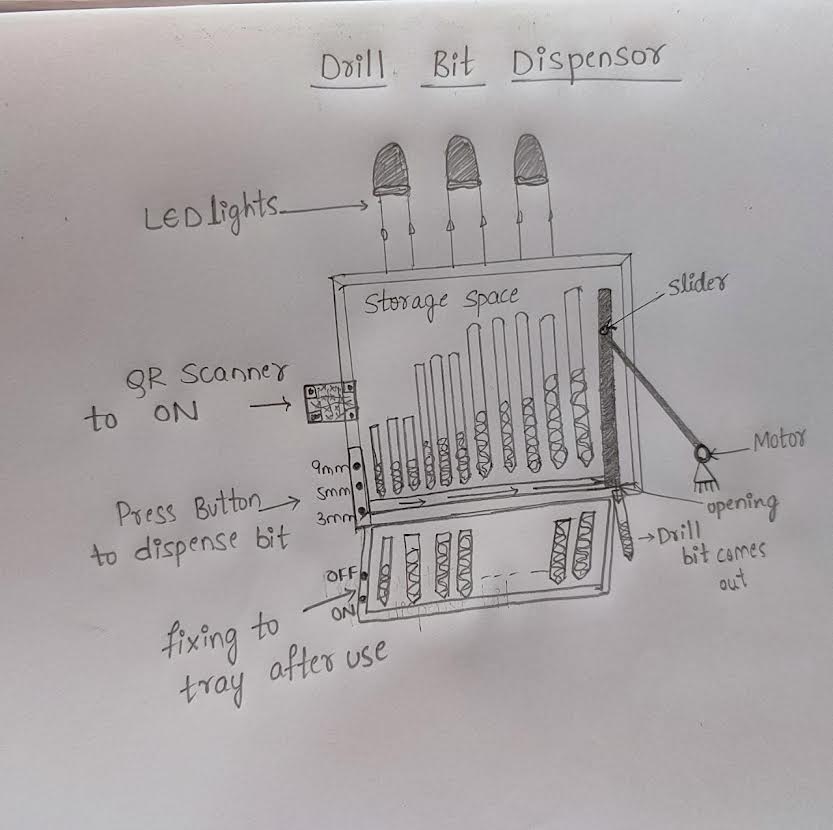 Drill Bit Dispensor
LED lights
Storage space
Slider
QR Scanner
to ON
Motor
9mm
5mm
3mm
Press Button
to dispense bit
opening
Drill
bit comes
out
OFF
ON
fixing to
tray after use